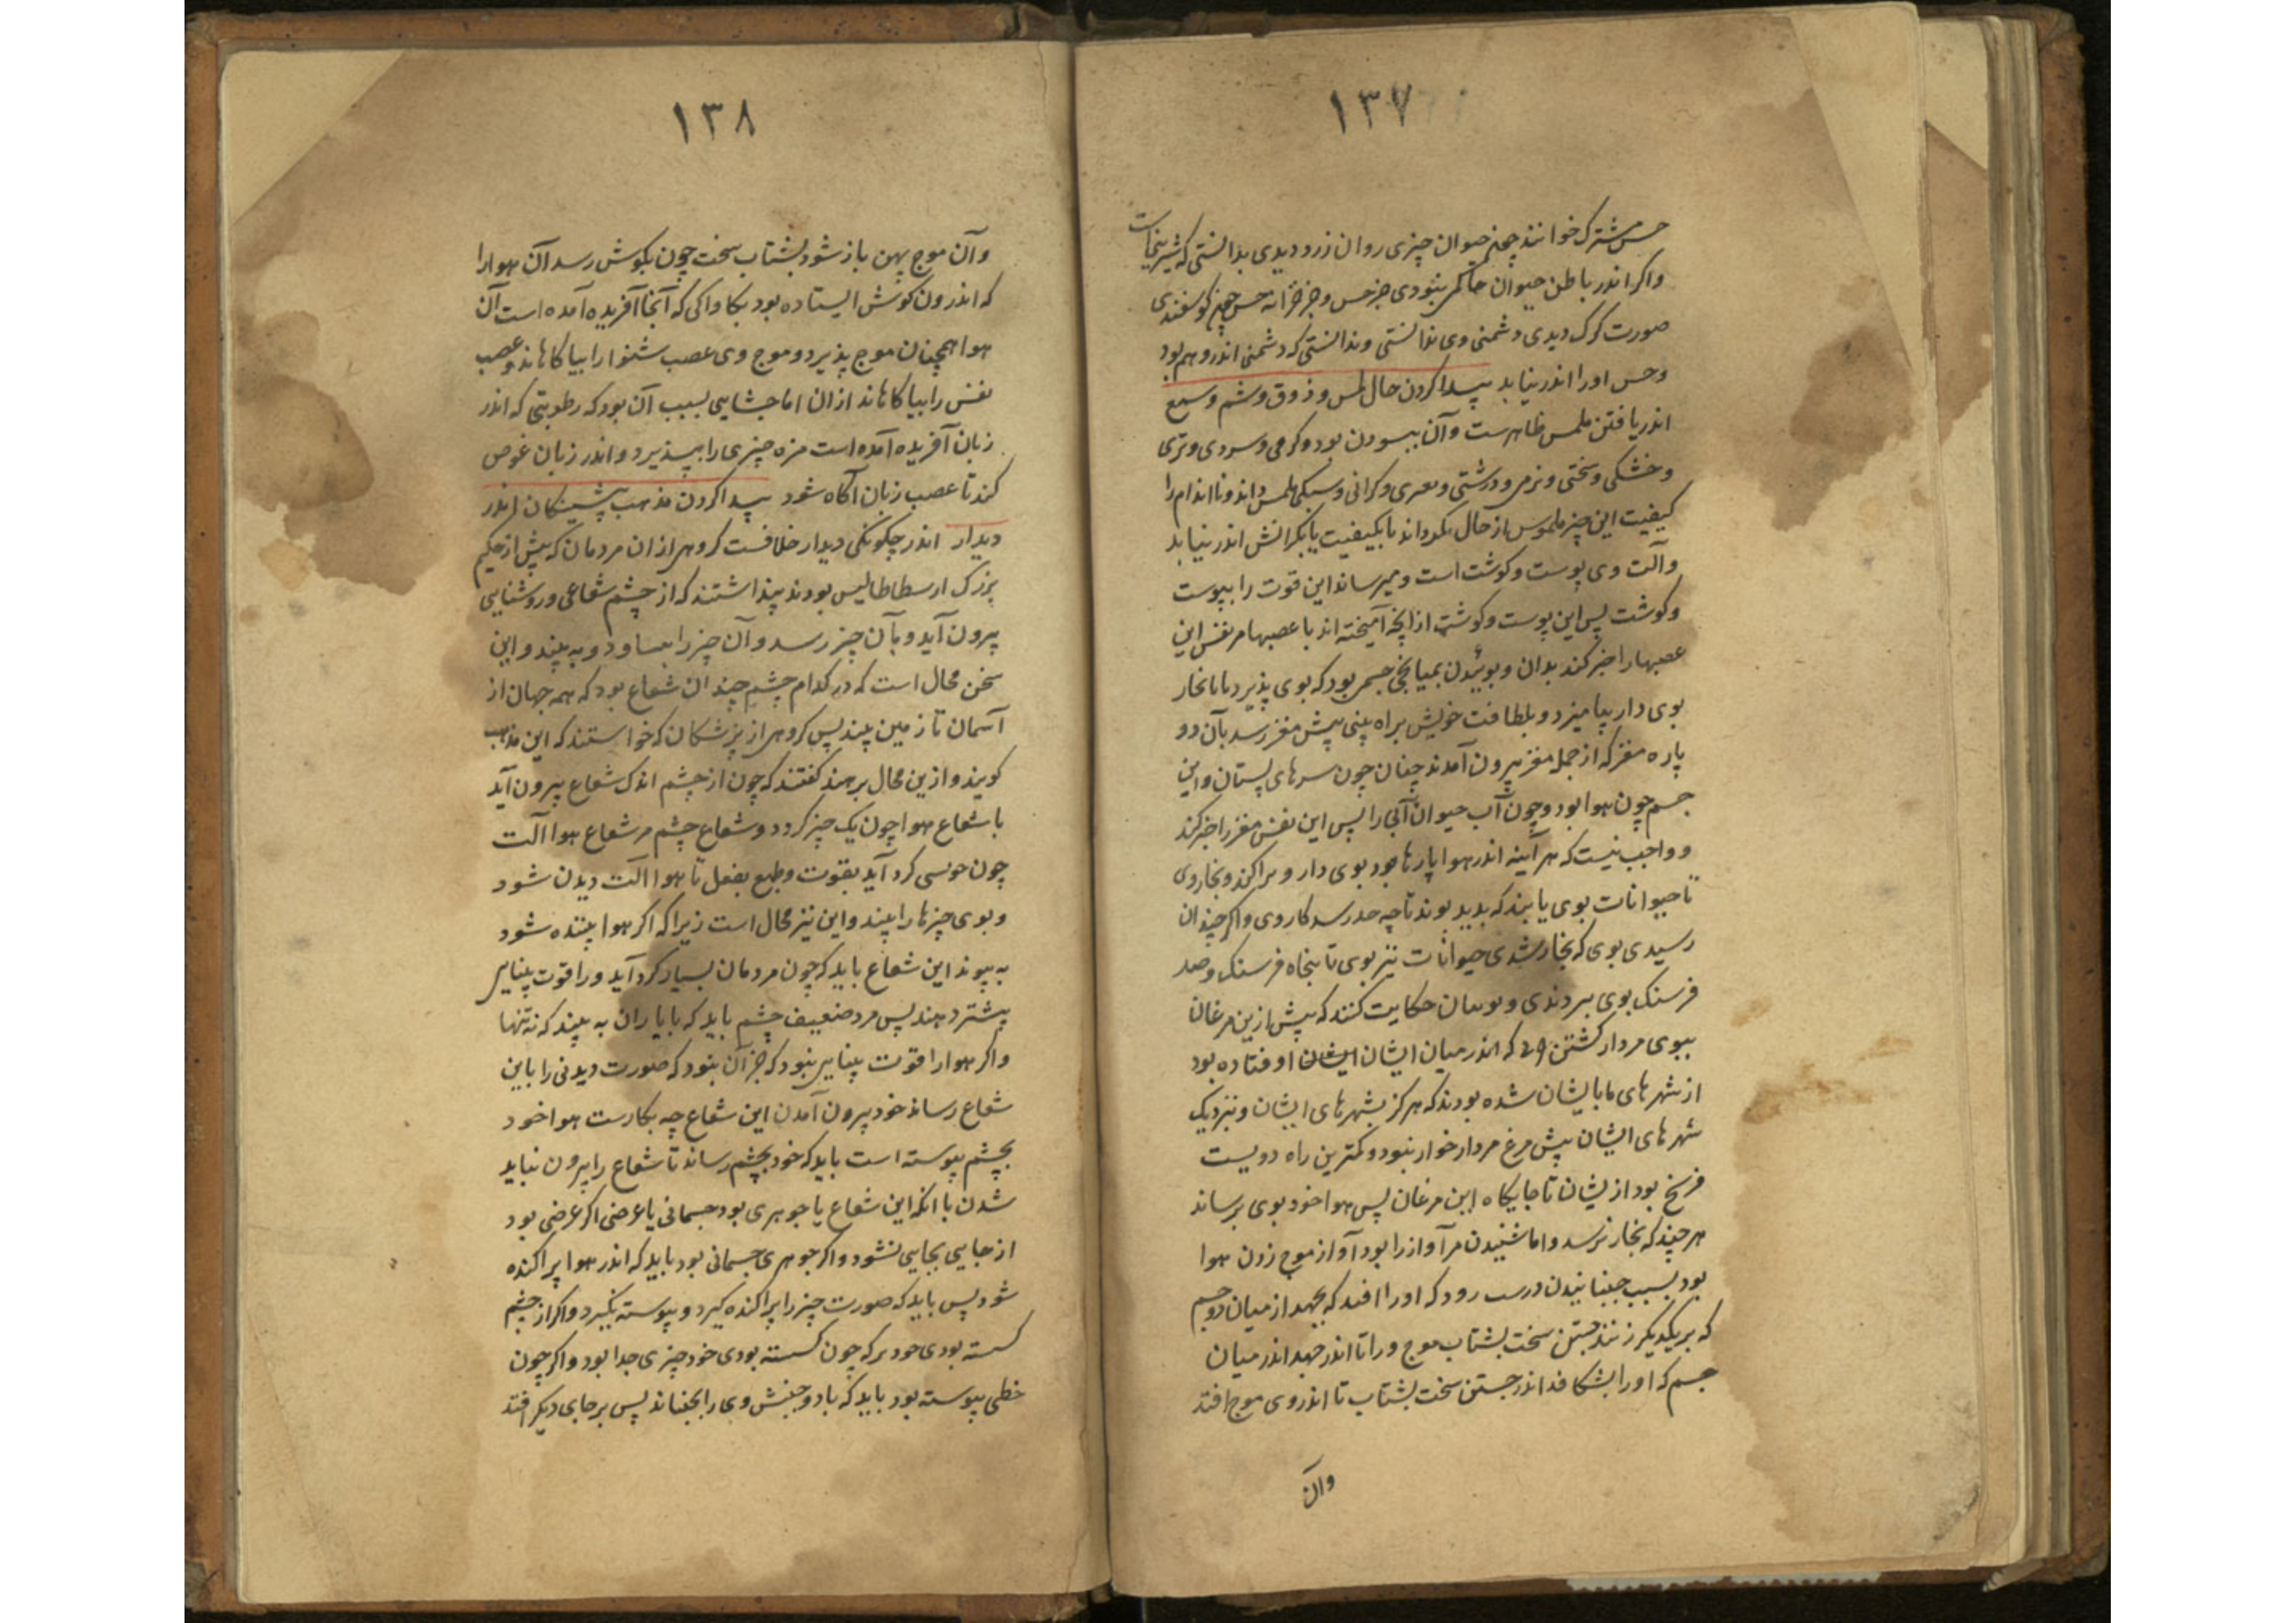 ۱۳۷
حس مشترک خوانند چه نه حیوان چیزی روان زرد دیدی بدانستی که شیرینیست
واکر اندر باطن حیوان حاکمی نبودی جز حس و جز خزانه حس چه کوسفندی
صورت کرک دیدی دشمنی وی ندانستی و ندانستی که دشمنی اندر وهم بود
وحس اورا اندر نیابد پیدا کردن حال لمس و ذوق و شم و سمع
اندر یافتن ملمس ظاهرست و آن ببسودن بود و کرمی و سردی و تری
و خشکی و سختی و نرمی و درشتی و و کرانی و سبکی بلمس داند و تا اندام را
کیفیت این چیز ملموس از حال نکرداند یا بکیفیت یا بکرانش اندر نیابد
و آلت وی پوست و کوشت است و میرساند این قوت را بپوست
و کوشت پس این پوست و کوشت ازانچه آمیخته اند با عصبها مر نفس این
عصبها را خبر کند بدان و بوئیدن بمیانجی جسمی بود که بوی پذیرد یا بابخار
بوی دار بیامیزد و بلطافت خویش براه بینی پیش مغز رسد بآن دو
پاره مغز که از جمله مغز بیرون آمدند چنان چون سرهای پستان و این
جسم چون هوا بود و چون آب حیوان آبی را پس این نفس مغز را خبر کند
و واجب نیست که هر آینه اندر هوا پارها بود بوی دار و پراکند و بخار وی
تا حیوانات بوی یابند که بدید بوند تا چه حد رسد کار وی و اکر چندان
رسیدی بوی که بخار شدی حیوانات نیز بوی تا پنجاه فرسنک و صد
فرسنک بوی ببردندی و حکایت کنند که پیش ازین مرغان
ببوی مردار کشتن که اندر میان ایشان ایشان اوفتاده بود
از شهرهای ما بایشان شده بودند که هرکز بشهرهای ایشان و نزدیک
شهرهای ایشان پیش مرغ مردارخوار نبود و کمترین راه دویست
فرسخ بود از یشان تا جایکاه این مرغان پس هوا خود بوی برساند
هر چند که بخار نرسد و اما شنیدن مر آواز را بود آواز موج زدن هوا
بود بسبب جنبانیدن درست رود که اورا افتد که بجهد از میان دو جسم
که بر یکدیکر زنند جستن سخت بشتاب موج ورا تا اندر جهد اندر میان
جسم که اورا بشکافد اندر جستن سخت بشتاب تا اندر وی موج افتد
وآن
۱۳۸
وآن موج پهن باز شود بشتاب سخت چون بکوش رسد آن هوا را
که اندرون کوش ایستاده بود بکاواکی که آنجا آفریده آمده است آن
هوا همچنان موج پذیرد و موج وی عصب شنوا را بیاکاهاند و عصب
نفس را بیاکاهاند ازان اما چشایی بسبب آن بود که رطوبتی که اندر
زبان آفریده آمده است مزه چیزی را بپذیرد و اندر زبان غوص
کند تا عصب زبان آکاه شود پیدا کردن مذهب پیشینکان اندر
دیدار اندر چکونکی دیدار خلافست کروهی ازان مردمان که پیش از حکیم
بزرک ارسطاطالیس بودند پنداشتند که از چشم شعاعی و روشنایی
بیرون آید و بآن چیز رسد و آن چیز را ببساود و به بیند و این
سخن محال است که در کدام چشم چندان شعاع بود که همه جهان از
آسمان تا زمین بیند پس کروهی از پزشکان که خواستند که این مذهب
کویند و ازین محال برهند کفتند که چون از چشم اندک شعاع بیرون آید
با شعاع هوا چون یک چیز کردد و شعاع چشم مر شعاع هوا آلت
چون کرد آید بقوت و طبع بفعل تا هوا آلت دیدن شود
و بوی چیزها را بیند و این نیز محال است زیرا که اکر هوا بیننده شود
به پیوند این شعاع باید که چون مردمان بسیار کرد آید ورا قوت بینایی
بیشتر دهند پس مرد ضعیف چشم باید که با یاران به بیند که نه تنها
و اکر هوا را قوت بینایی نبود که جز آن نبود که صورت دیدنی را باین
شعاع رساند خود بیرون آمدن این شعاع چه بکارست هوا خود
بچشم پیوسته است باید که خود بچشم رساند تا شعاع را بیرون نباید
شدن با آنکه این شعاع یا جوهری بود جسمانی یا عرضی اکر عرضی بود
از جایی بجایی نشود و اکر جوهری جسمانی بود باید که اندر هوا پراکنده
شود پس باید که صورت چیز را پراکنده کیرد و پیوسته نکیرد و اکر از چشم
کسسته بودی خود برکه چون کسسته بودی خود چیزی جدا بود و اکر چون
خطی پیوسته بود باید که باد و جنبش وی را بجنباند پس بر جای دیکر افتد